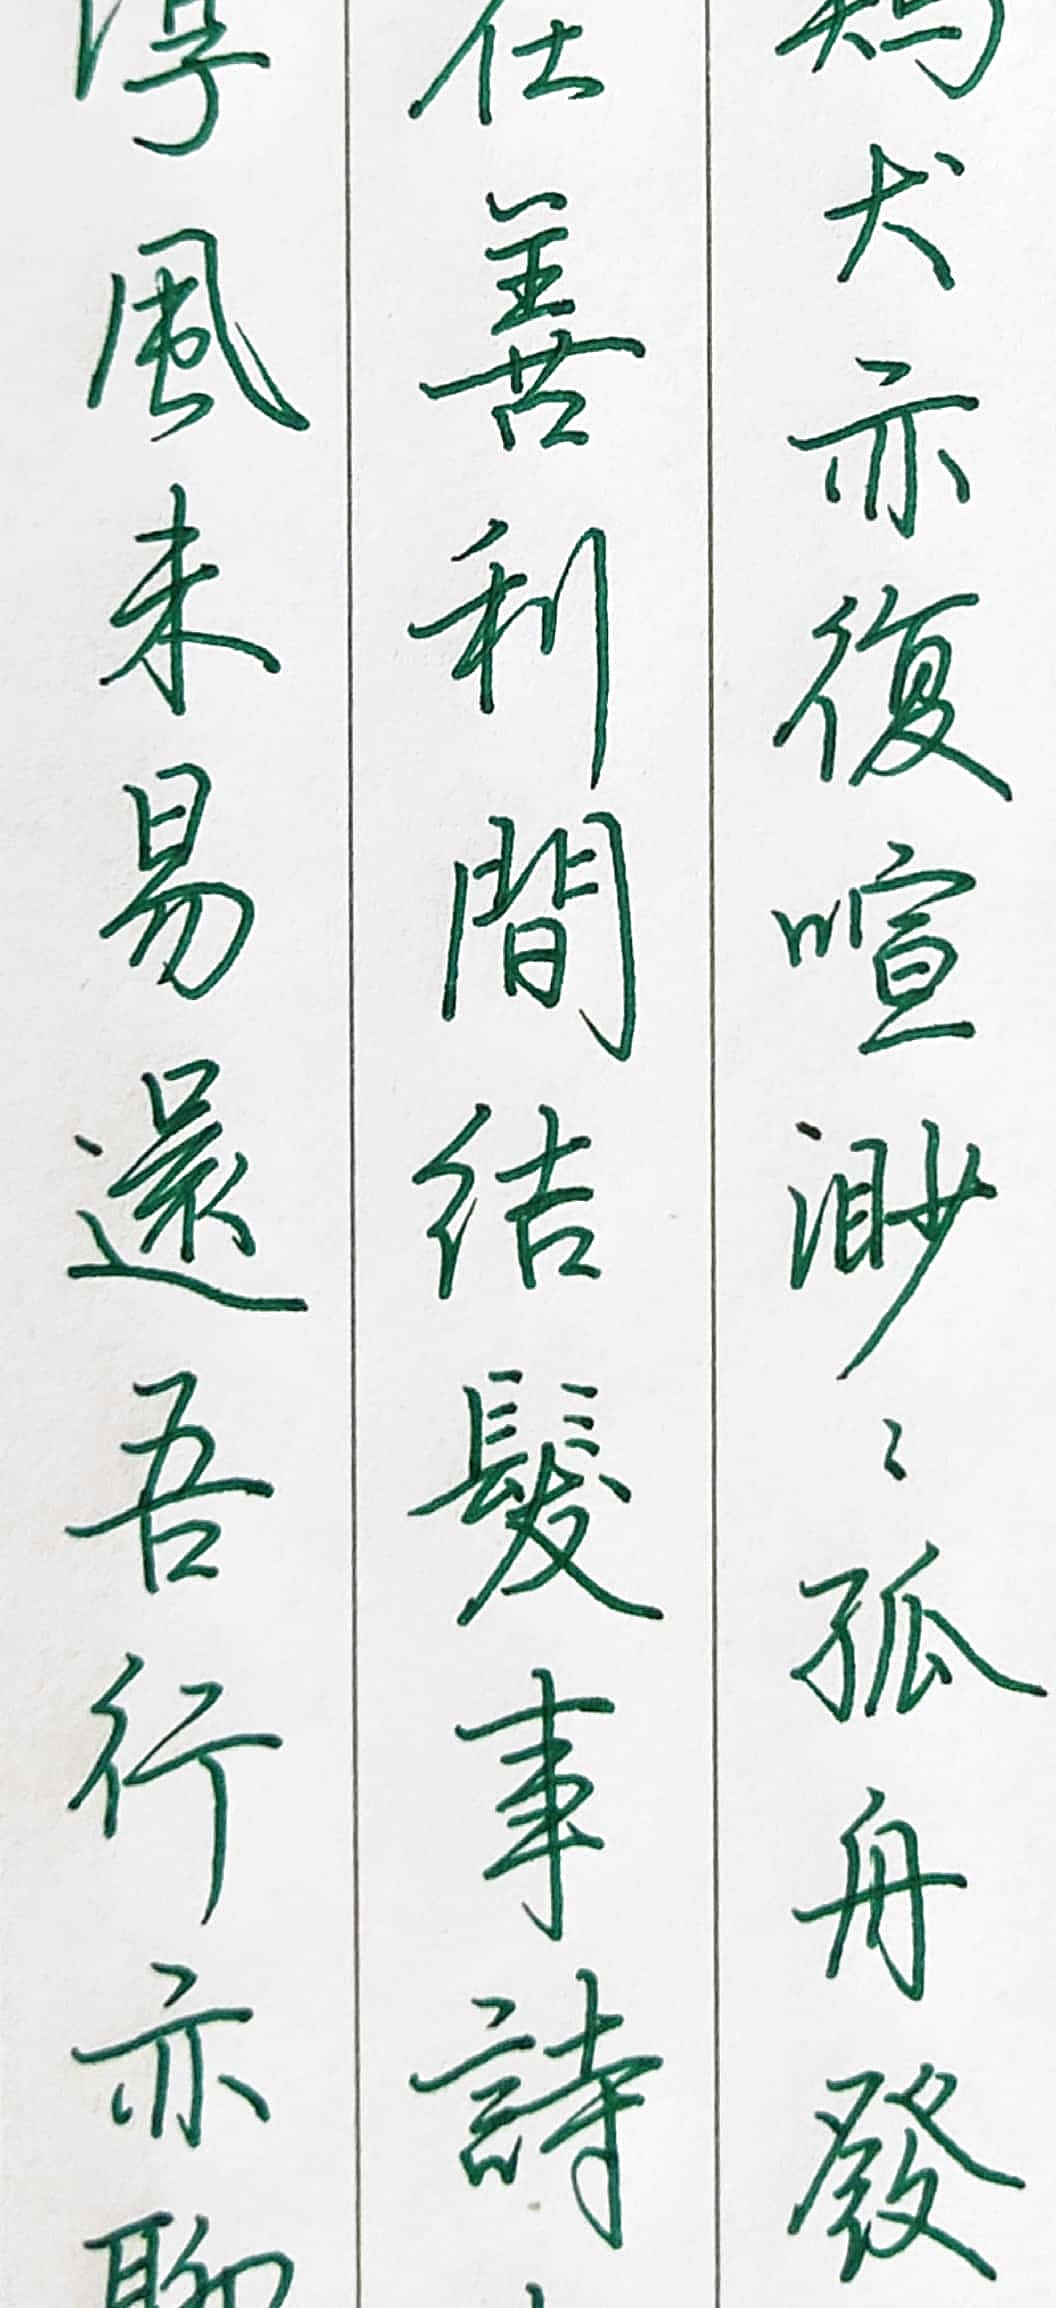 鷄犬亦復喧渺〻孤舟發
在善利間結髮事詩
淳風未易還吾行亦聊